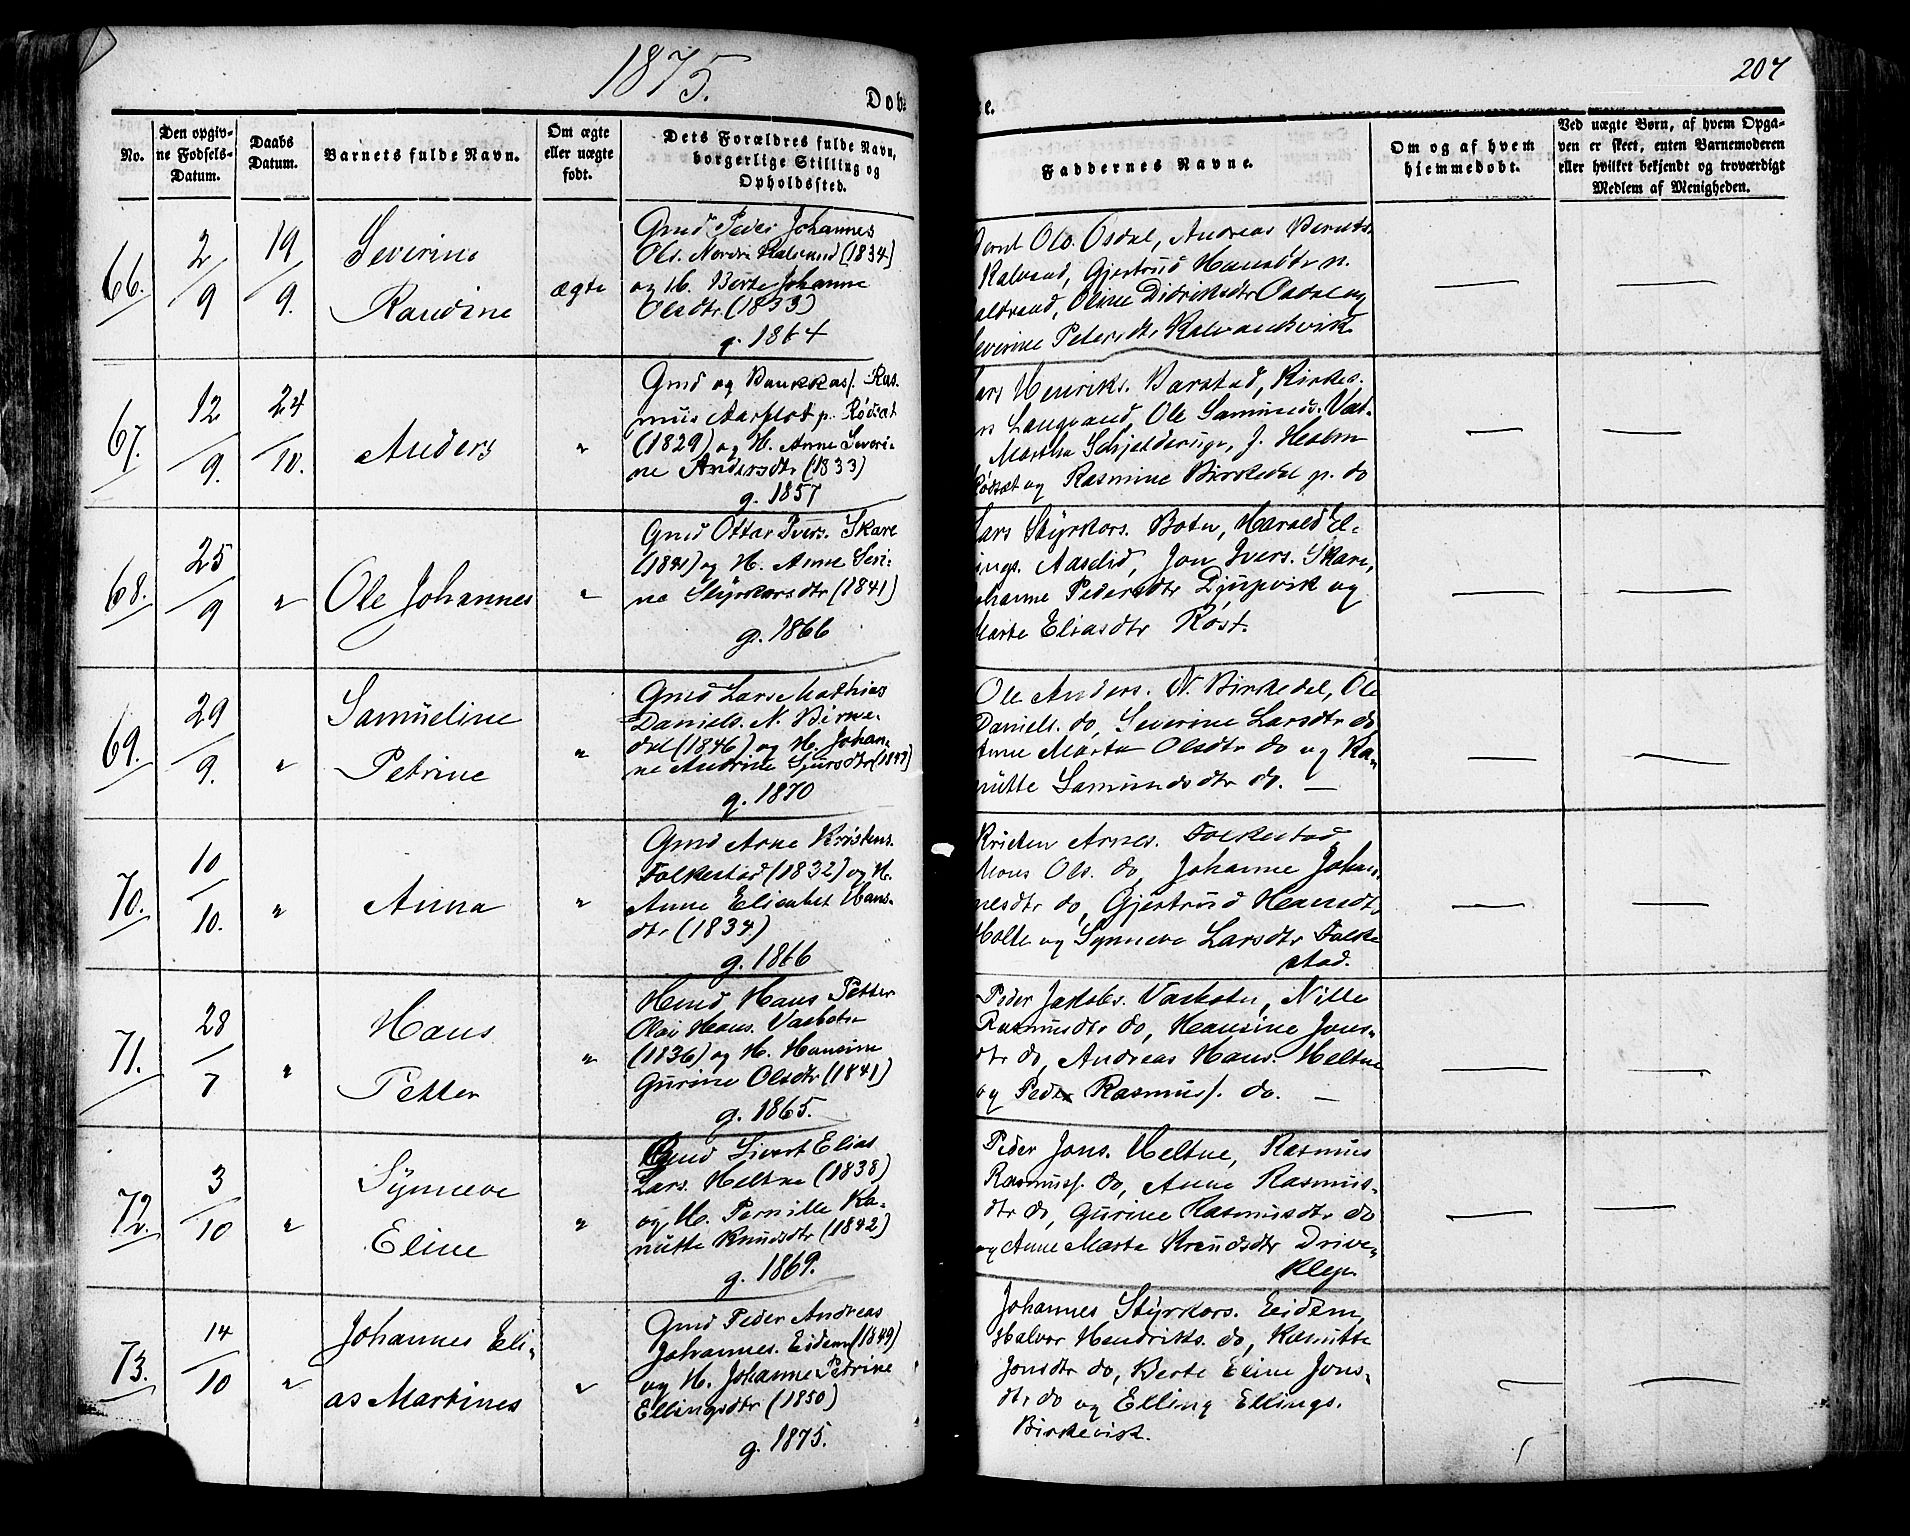 1875.
207
Døbte.
No.
Den opgivne Fødsels-Datum.
Daabs Datum.
Barnets fulde Navn.
Om ægte eller uægte født.
Dets Forældres fulde Navn, borgerlige Stilling og Opholdssted.
Faddernes Navne.
Om og af hvem hjemmedøbt.
Ved uægte Børn, af hvem Opgaven er skeet, enten Barnemoderen eller hvilket bekjendt og troværdigt Medlem af Menigheden.
66.
2/9
19/9.
Severine
Raudine
ægte
Gmd Peder Johannes
Ols. Nordre Kalvand (1834)
og H. Berte Johanne
Olsdtr (1833)
g. 1864
Bernt Ols. Osdal, Andreas Bernts.
Kalvand, Gjertrud Hansdtr n.
Kalvand, Oline Didriksdtr Osdal og
Severine Petersdtr Kalvandsvik
67.
12/9.
24/10.
Anders
"
Gmd og Bankkass. Ras-
mus Aarflot p. Rødsæt
(1829) og H. Anne Severi-
ne Andersdtr (1833)
g. 1857
Lars Henriks. Barstad, Kirkes.
Langvand, Ole Samunds. Vat-
Martha Schjelderup, J. Holm
Rødsæt og Rasmine Birkedal p. do
68.
25/9
"
Ole Johannes
"
Gmd Ottar Ivers. Skare
(1841) og H. Anne Seri-
ne Styrkarsdtr (1841)
g. 1866
Lars Styrkors. Botn, Harald El-
lings. Aaselid, Jon Ivers. Skare,
Johanne Pedersdtr Djupvik og
Marte Eliasdtr Røst.
69.
29/9.
"
Samueline
Petrine
"
Gmd Lars Mathias
Daniels. N. Birke-
dal (1846) og H. Johan-
ne Andrine Sjursdtr (1847)
g. 1870
Ole Anders. N. Birkedal, Ole
Daniels. do, Severine Larsdtr do
Anne Marta Olsdtr do og Ka-
nutte Samundsdtr do. —
70.
10/10.
"
Anna
"
Gmd Arne Kristens.
Folkestad (1832) og H.
Anne Elisabet Hans-
dtr (1834)
g. 1866
Kristen Arnes. Folkestad
Mons Ols. do, Johanne Johan-
nesdtr do, Gjertrud Hansdtr
Holte og Synneve Larsdtr Folke
stad.
71.
28/7
"
Hans
Petter
"
Hmd Hans Petter
Olai Hans. Vasbotn
(1836) og H. Hansine
Gurine Olsdtr (1841)
g. 1865.
Peder Jakobs. Vasbotn, Nille
Rasmusdtr do, Hansine Jons-
dtr do, Andreas Hans. Heltne
og Peder Rasmuss. do. —
72.
3/10
"
Synneve
Eline
"
Gmd Sivert Elias
Lars. Heltne (1838)
og H. Pernille Ka-
nutte Knudsdtr (1842)
g. 1869.
Peder Jons. Heltne, Rasmus
Rasmuss. do, Anne Rasmus-
dtr do, Gurine Rasmusdtr do
og Anne Marta Knudsdtr Drive-
klep.
73.
14/10
"
Johannes Eli-
as Martines
"
Gmd Peder Andreas
Johannes. Eidem (1849)
og H. Johanne Petrine
Ellingsdtr (1850)
g. 1875.
Johannes Styrkors. Eidem,
Halvor Hendriks. do, Kanutte
Jonsdtr do, Berte Eline Jons-
dtr do og Elling Ellings.
Birkevik.